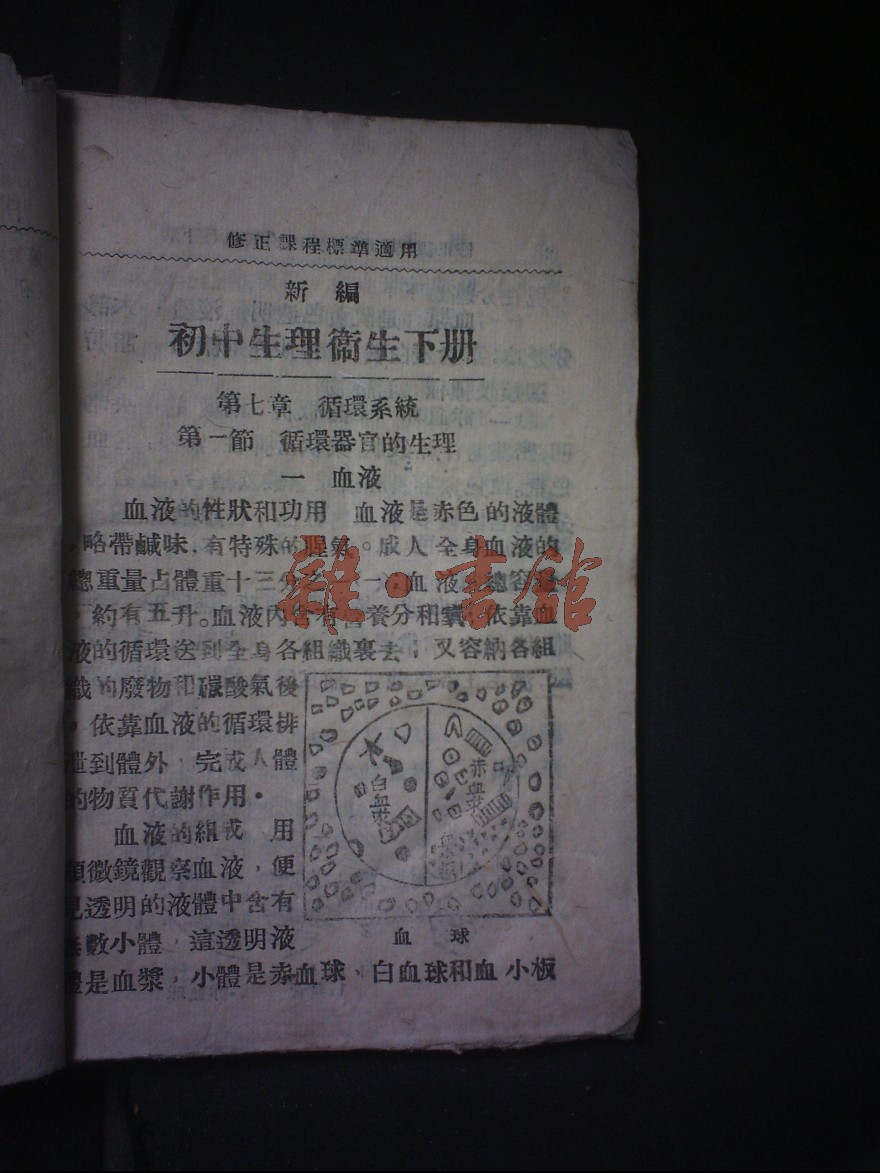 修正課程標準適用
新編
初中生理衞生下册
第七章 循環系統
第一節 循環器官的生理
一 血液
血液的性狀和功用 血液是赤色的液體
，略帶鹹味，有特殊的腥氣。成人全身血液的
總重量占體重十三分之一，血液總容
，約有五升。血液內含有營養分和氧，依靠血
液的循環送到全身各組織裏去；又容納各組
織的廢物和碳酸氣後
，依靠血液的循環排
泄到體外 完成人體
的物質代謝作用。
血液的組成 用
顯微鏡觀察血液，便
見透明的液體中含有
無數小體 這透明液
體是血漿，小體是赤血球、白血球和血小板
白血球
赤血球
血球
雜·書館